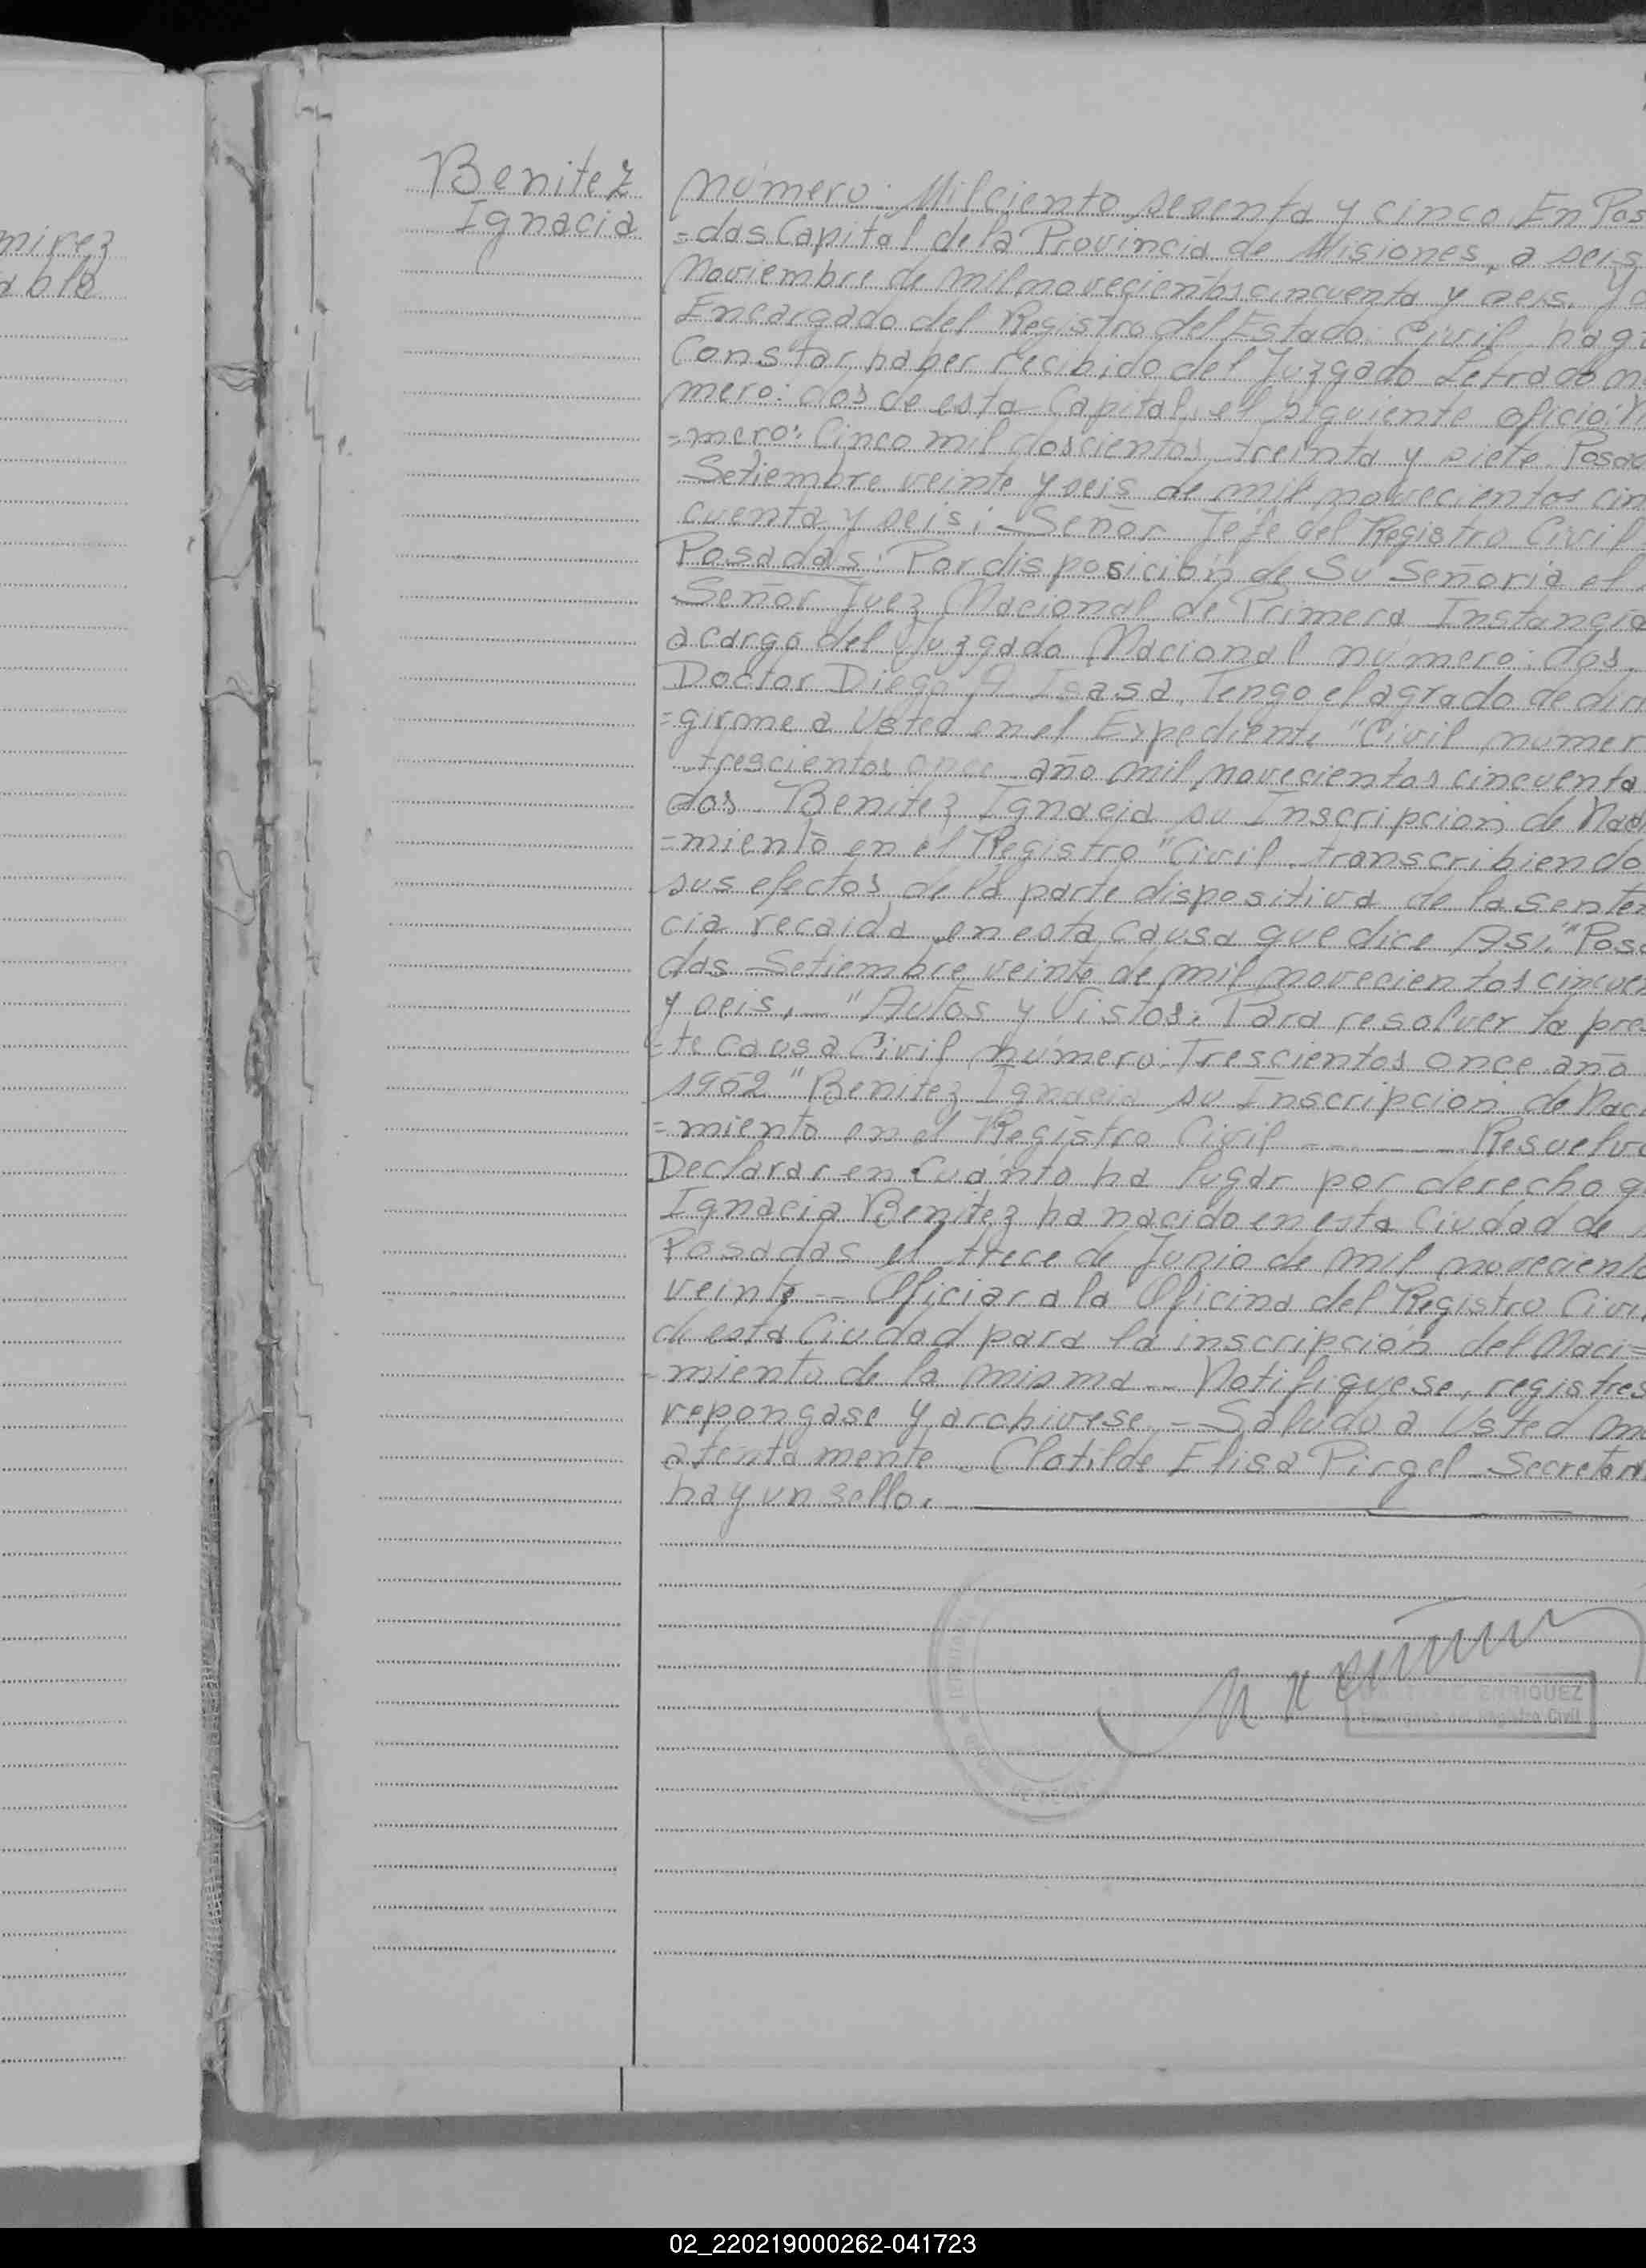 mirez
ablo
Benitez
Ignacia
Número: Mil ciento sesenta y cinco. En Pos
=das Capital de la Provincia de Misiones, a seis
Noviembre de mil novecientos cincuenta y seis. Yo
Encargado del Registro del Estado Civil hag
Constar haber recibido del Juzgado Letrado n
mero: dos de esta Capital, el siguiente oficio: N
=mero: Cinco mil doscientos treinta y siete. Posad
Setiembre veinte y seis de mil novecientos cin
cuenta y seis: Señor Jefe del Registro Civil
Posadas: Por disposición de Su Señoria el
Señor Juez Nacional de Primera Instancia
a cargo del Juzgado Nacional número: dos.
Doctor Diego A. Tengo el agrado de diri
=girme a Usted en el Expediente "Civil numer
trescientos once año mil novecientos cincuenta
dos Benitez Ignacia su Inscripcion de Naci
=miento en el Registro "Civil transcribiendo
sus efectos de la parte dispositiva de la senten
cia recaida en esta causa que dice Asi: "Posa
das Setiembre veinte de mil novecientos cincuen
y seis. — "Autos y Vistos: Para resolver la pre
=te causa Civil número: Trescientos once año
1952 "Benitez Ignacia su Inscripcion de Naci
=miento en el Registro Civil — — — Resuelvo
Declarar en cuanto ha lugar por derecho q
Ignacia Benitez ha nacido en esta Ciudad de
Posadas el trece de Junio de mil noveciento
veinte — Oficiar a la Oficina del Registro Civi
de esta Ciudad para la inscripción del Naci=
=miento de la misma — Notifiquese, registres
repongase y archivese. — Saludo a Usted m
atentamente. Clotilde Elisa Pirgel Secretari
hay un sello.
ENRIQUEZ
Registro Civil
02_220219000262-041723